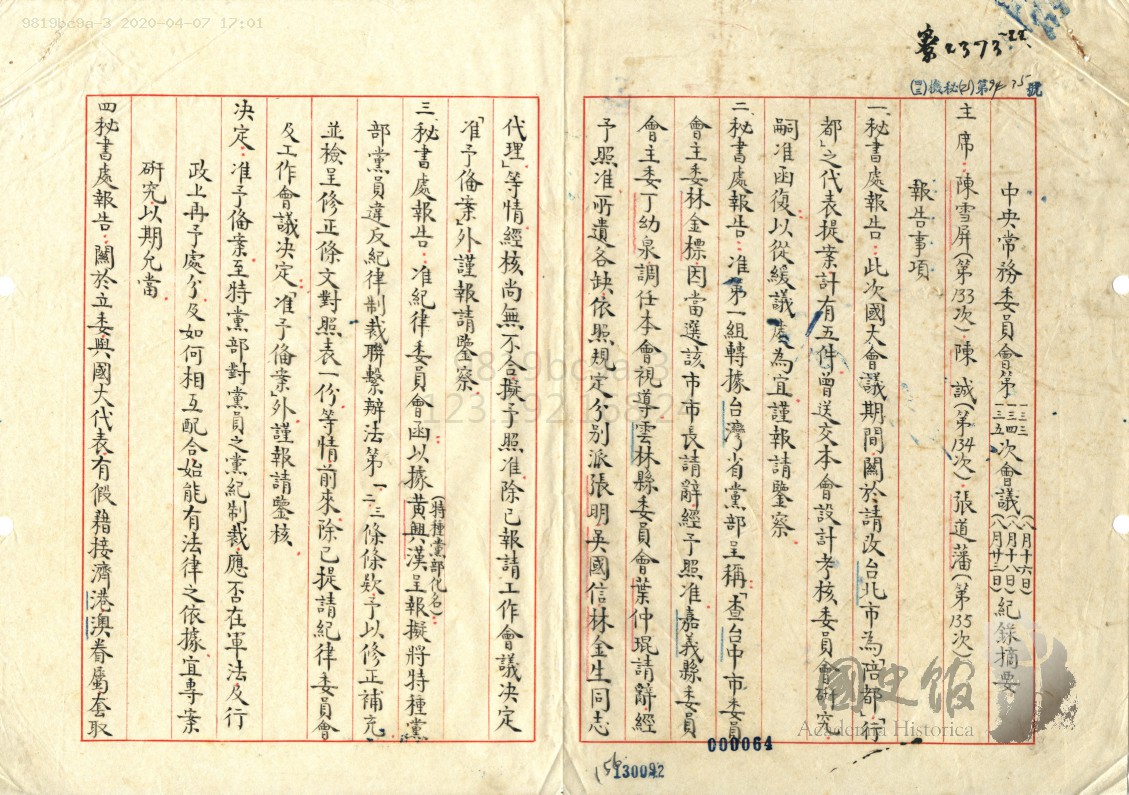 9819bc9a-3 2020-04-07 17:01
寮2373
(四三)機秘(乙)第94-75號
中央常務委員會第一三三、一三四、一三五次會議(八月十六日)(八月十八日)(八月廿三日)紀錄摘要
主席:陳雪屏(第133次)、陳誠(第134次)、張道藩(第135次)
報告事項
一、秘書處報告:此次國大會議期間關於請改台北市為陪都「行
都」之代表提案計有五件曾送交本會設計考核委員會研究
嗣准函復以從緩議處為宜謹報請鑒察
二、秘書處報告:准第一組轉據台灣省黨部呈稱「查台中市委員
會主委林金標因當選該市市長請辭經予照准嘉義縣委員
會主委丁幼泉調任本會視導雲林縣委員會葉仲琨請辭經
予照准所遺各缺依照規定分別派張明、吳國信、林金生同志
代理」等情經核尚無不合擬予照准除已報請工作會議決定
「准予備案」外謹報請鑒察
三、秘書處報告:准紀律委員會函以據黃興漢(特種黨部化名):呈報擬將特種黨
部黨員違反紀律制裁聯繫辦法第一、二、三條條款予以修正補充
並檢呈修正條文對照表一份等情前來除已提請紀律委員會
及工作會議決定「准予備案」外謹報請鑒核
決定:准予備案至特黨部對黨員之黨紀制裁應否在軍法及行
政上再予處分及如何相互配合始能有法律之依據宜專案
研究以期允當
四、秘書處報告:關於立委與國大代表有假藉接濟港澳眷屬套取
國史館
Academia Historica
9819bc9a-3
000064
130092